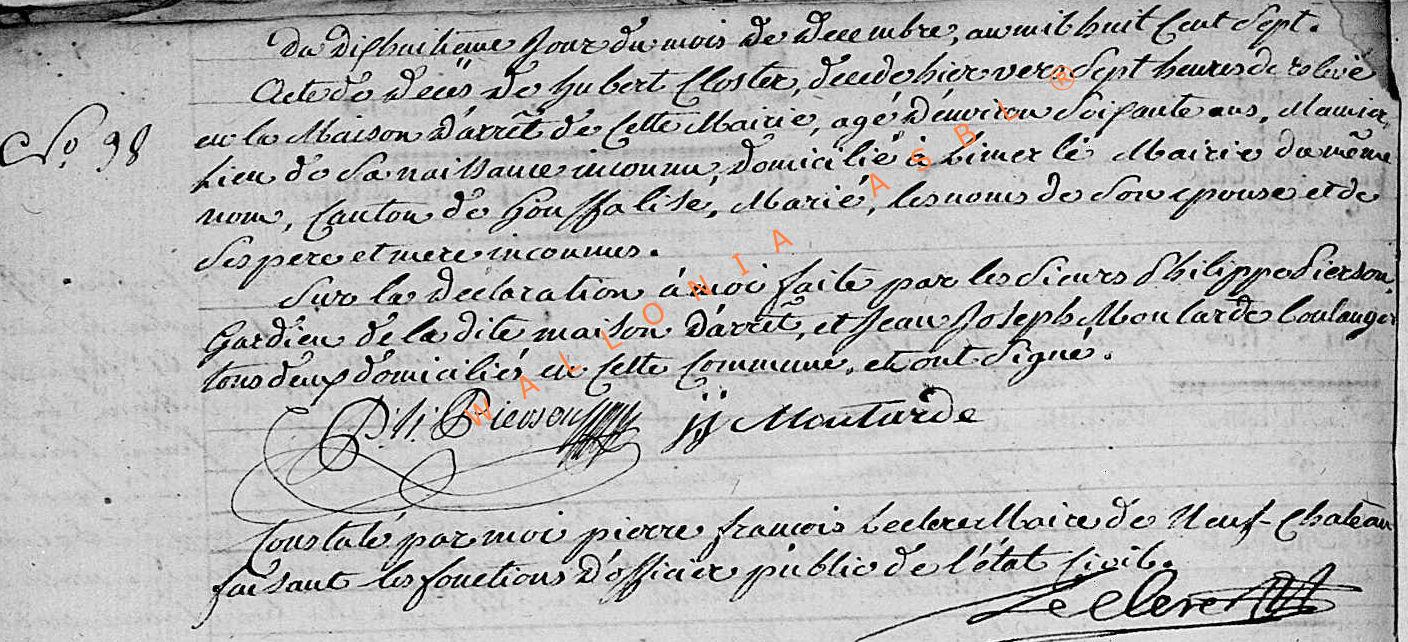 Du dixhuitieme Jour du mois de Decembre, an mil huit Cent Sept.
Acte de Décés de hubert Closter, décédé hier vers Sept heures de relevé
No. 98
en la Maison d'arrêt de Cette Mairie, agé d'environ Soixante ans,
Lieu de Sa naissance inconnu, Domicilié à Limerlé Mairie du même
nom, Canton de Houffalise, Marié, les noms de Son epouse et de
Ses pere et mere inconnus.
Sur la Déclaration à moi faite par les Sieurs Philippe Pierson,
Gardien de la dite maison d'arrêt, et Jean Joseph Moutarde boulanger
tous deux domiciliés en Cette Commune, et ont Signé.
P. h. Pierson jj Moutarde
Constaté par moi pierre françois Leclere Maire de Neuf-Chateau
faisant les fonctions d'officier public de l'état Civil.
Leclere
WALLONIA ASBL ®